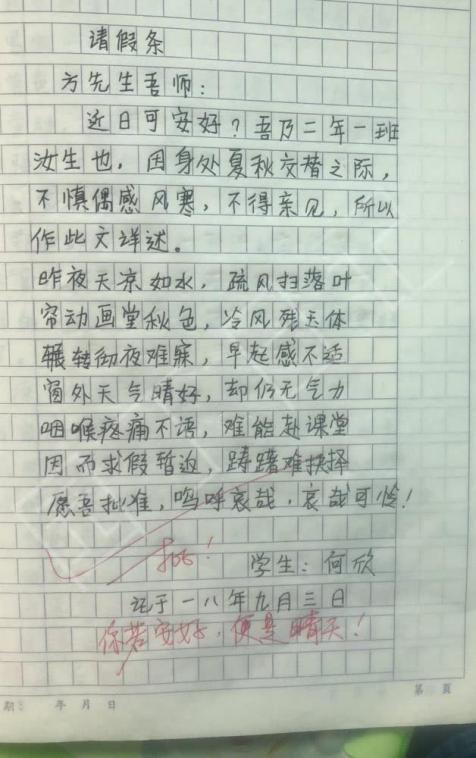 请假条
方先生吾师：
近日可安好？吾乃二年一班
汝生也，因身处夏秋交替之际，
不慎偶感风寒，不得亲见，所以
作此文详述。
昨夜天凉如水，疏风扫落叶
帘动画堂秋色，冷风残玉体
辗转彻夜难寐，早起感不适
窗外天气晴好，却仍无气力
咽喉疼痛不语，难能赴课堂
因而求假暂返，踌躇难抉择
愿吾拟准，呜呼哀哉，哀哉可怜！
批！
学生：何欣
记于一八年九月三日
你若安好，便是晴天！
期： 年 月 日
第 页